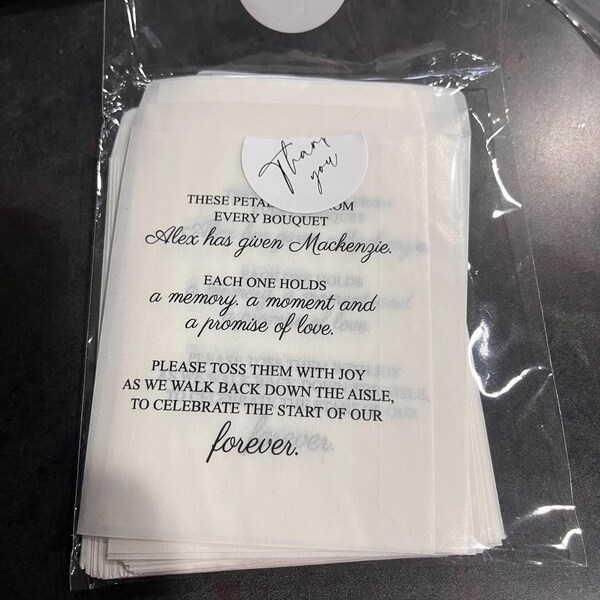 Thank
you
THESE PETA OM
EVERY BOUQUET
Alex has given Mackenzie.
EACH ONE HOLDS
a memory, a moment and
a promise of love.
PLEASE TOSS THEM WITH JOY
AS WE WALK BACK DOWN THE AISLE,
TO CELEBRATE THE START OF OUR
forever.